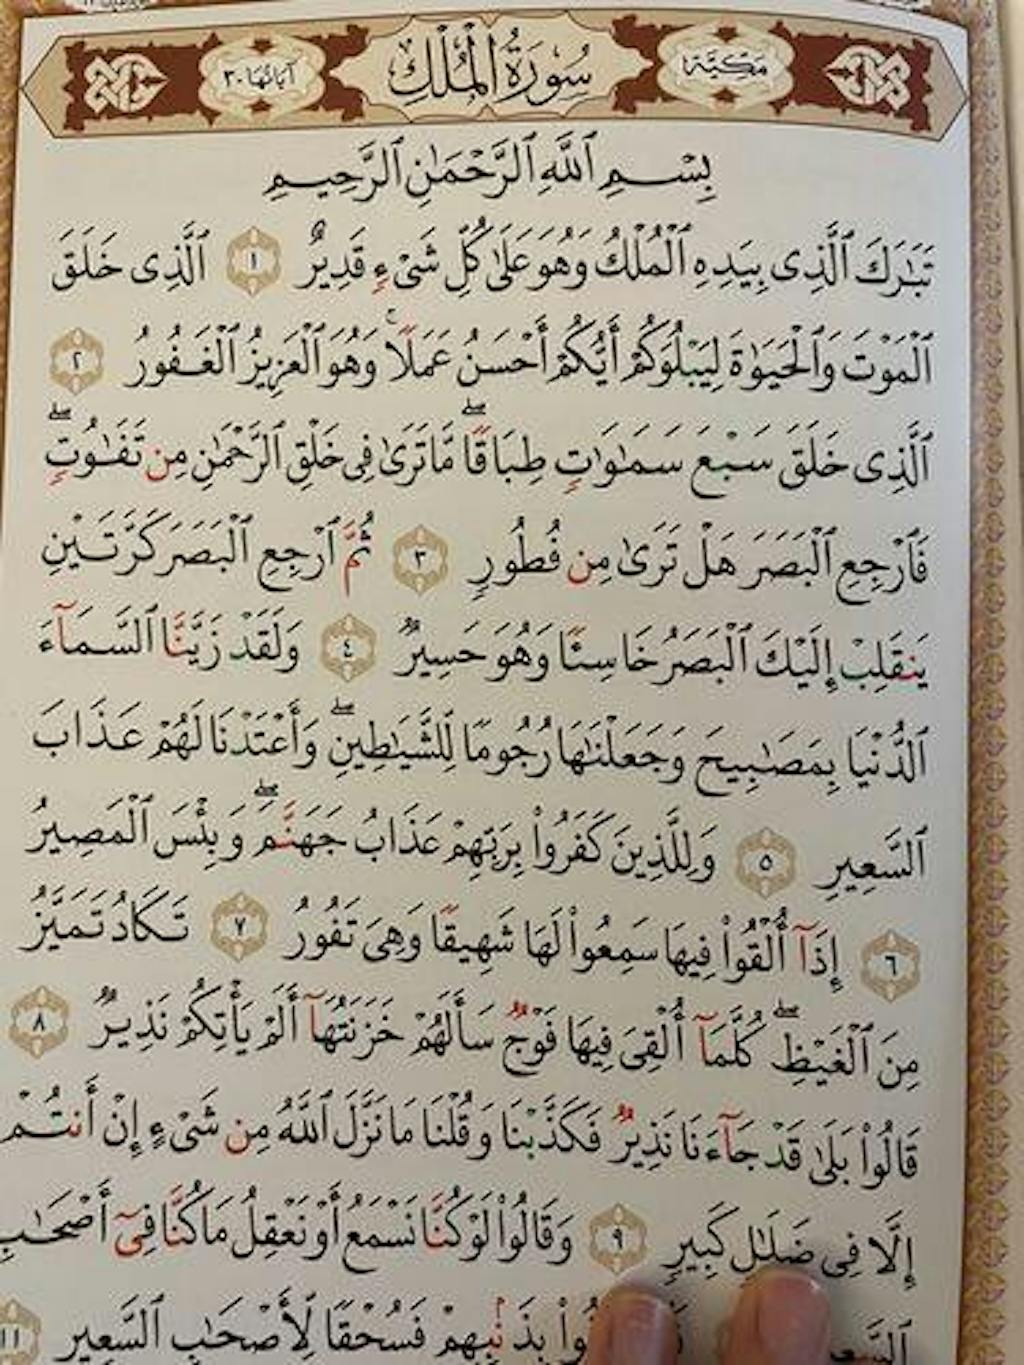 مَكِّيَّة سُورَةُ الْمُلْكِ آيَاتُهَا ٣٠
بِسْمِ ٱللَّهِ ٱلرَّحْمَٰنِ ٱلرَّحِيمِ
تَبَٰرَكَ ٱلَّذِى بِيَدِهِ ٱلْمُلْكُ وَهُوَ عَلَىٰ كُلِّ شَىْءٍ قَدِيرٌ ١ ٱلَّذِى خَلَقَ
ٱلْمَوْتَ وَٱلْحَيَوٰةَ لِيَبْلُوَكُمْ أَيُّكُمْ أَحْسَنُ عَمَلًا ۚ وَهُوَ ٱلْعَزِيزُ ٱلْغَفُورُ ٢
ٱلَّذِى خَلَقَ سَبْعَ سَمَٰوَٰتٍ طِبَاقًا ۖ مَّا تَرَىٰ فِى خَلْقِ ٱلرَّحْمَٰنِ مِن تَفَٰوُتٍ ۖ
فَٱرْجِعِ ٱلْبَصَرَ هَلْ تَرَىٰ مِن فُطُورٍ ٣ ثُمَّ ٱرْجِعِ ٱلْبَصَرَ كَرَّتَيْنِ
يَنقَلِبْ إِلَيْكَ ٱلْبَصَرُ خَاسِئًا وَهُوَ حَسِيرٌ ٤ وَلَقَدْ زَيَّنَّا ٱلسَّمَآءَ
ٱلدُّنْيَا بِمَصَٰبِيحَ وَجَعَلْنَٰهَا رُجُومًا لِّلشَّيَٰطِينِ ۖ وَأَعْتَدْنَا لَهُمْ عَذَابَ
ٱلسَّعِيرِ ٥ وَلِلَّذِينَ كَفَرُوا۟ بِرَبِّهِمْ عَذَابُ جَهَنَّمَ ۖ وَبِئْسَ ٱلْمَصِيرُ
٦ إِذَآ أُلْقُوا۟ فِيهَا سَمِعُوا۟ لَهَا شَهِيقًا وَهِىَ تَفُورُ ٧ تَكَادُ تَمَيَّزُ
مِنَ ٱلْغَيْظِ ۖ كُلَّمَآ أُلْقِىَ فِيهَا فَوْجٌ سَأَلَهُمْ خَزَنَتُهَآ أَلَمْ يَأْتِكُمْ نَذِيرٌ ٨
قَالُوا۟ بَلَىٰ قَدْ جَآءَنَا نَذِيرٌ فَكَذَّبْنَا وَقُلْنَا مَا نَزَّلَ ٱللَّهُ مِن شَىْءٍ إِنْ أَنتُمْ
إِلَّا فِى ضَلَٰلٍ كَبِيرٍ ٩ وَقَالُوا۟ لَوْ كُنَّا نَسْمَعُ أَوْ نَعْقِلُ مَا كُنَّا فِىٓ أَصْحَٰبِ
بِذَنۢبِهِمْ فَسُحْقًا لِّأَصْحَٰبِ ٱلسَّعِيرِ ١١